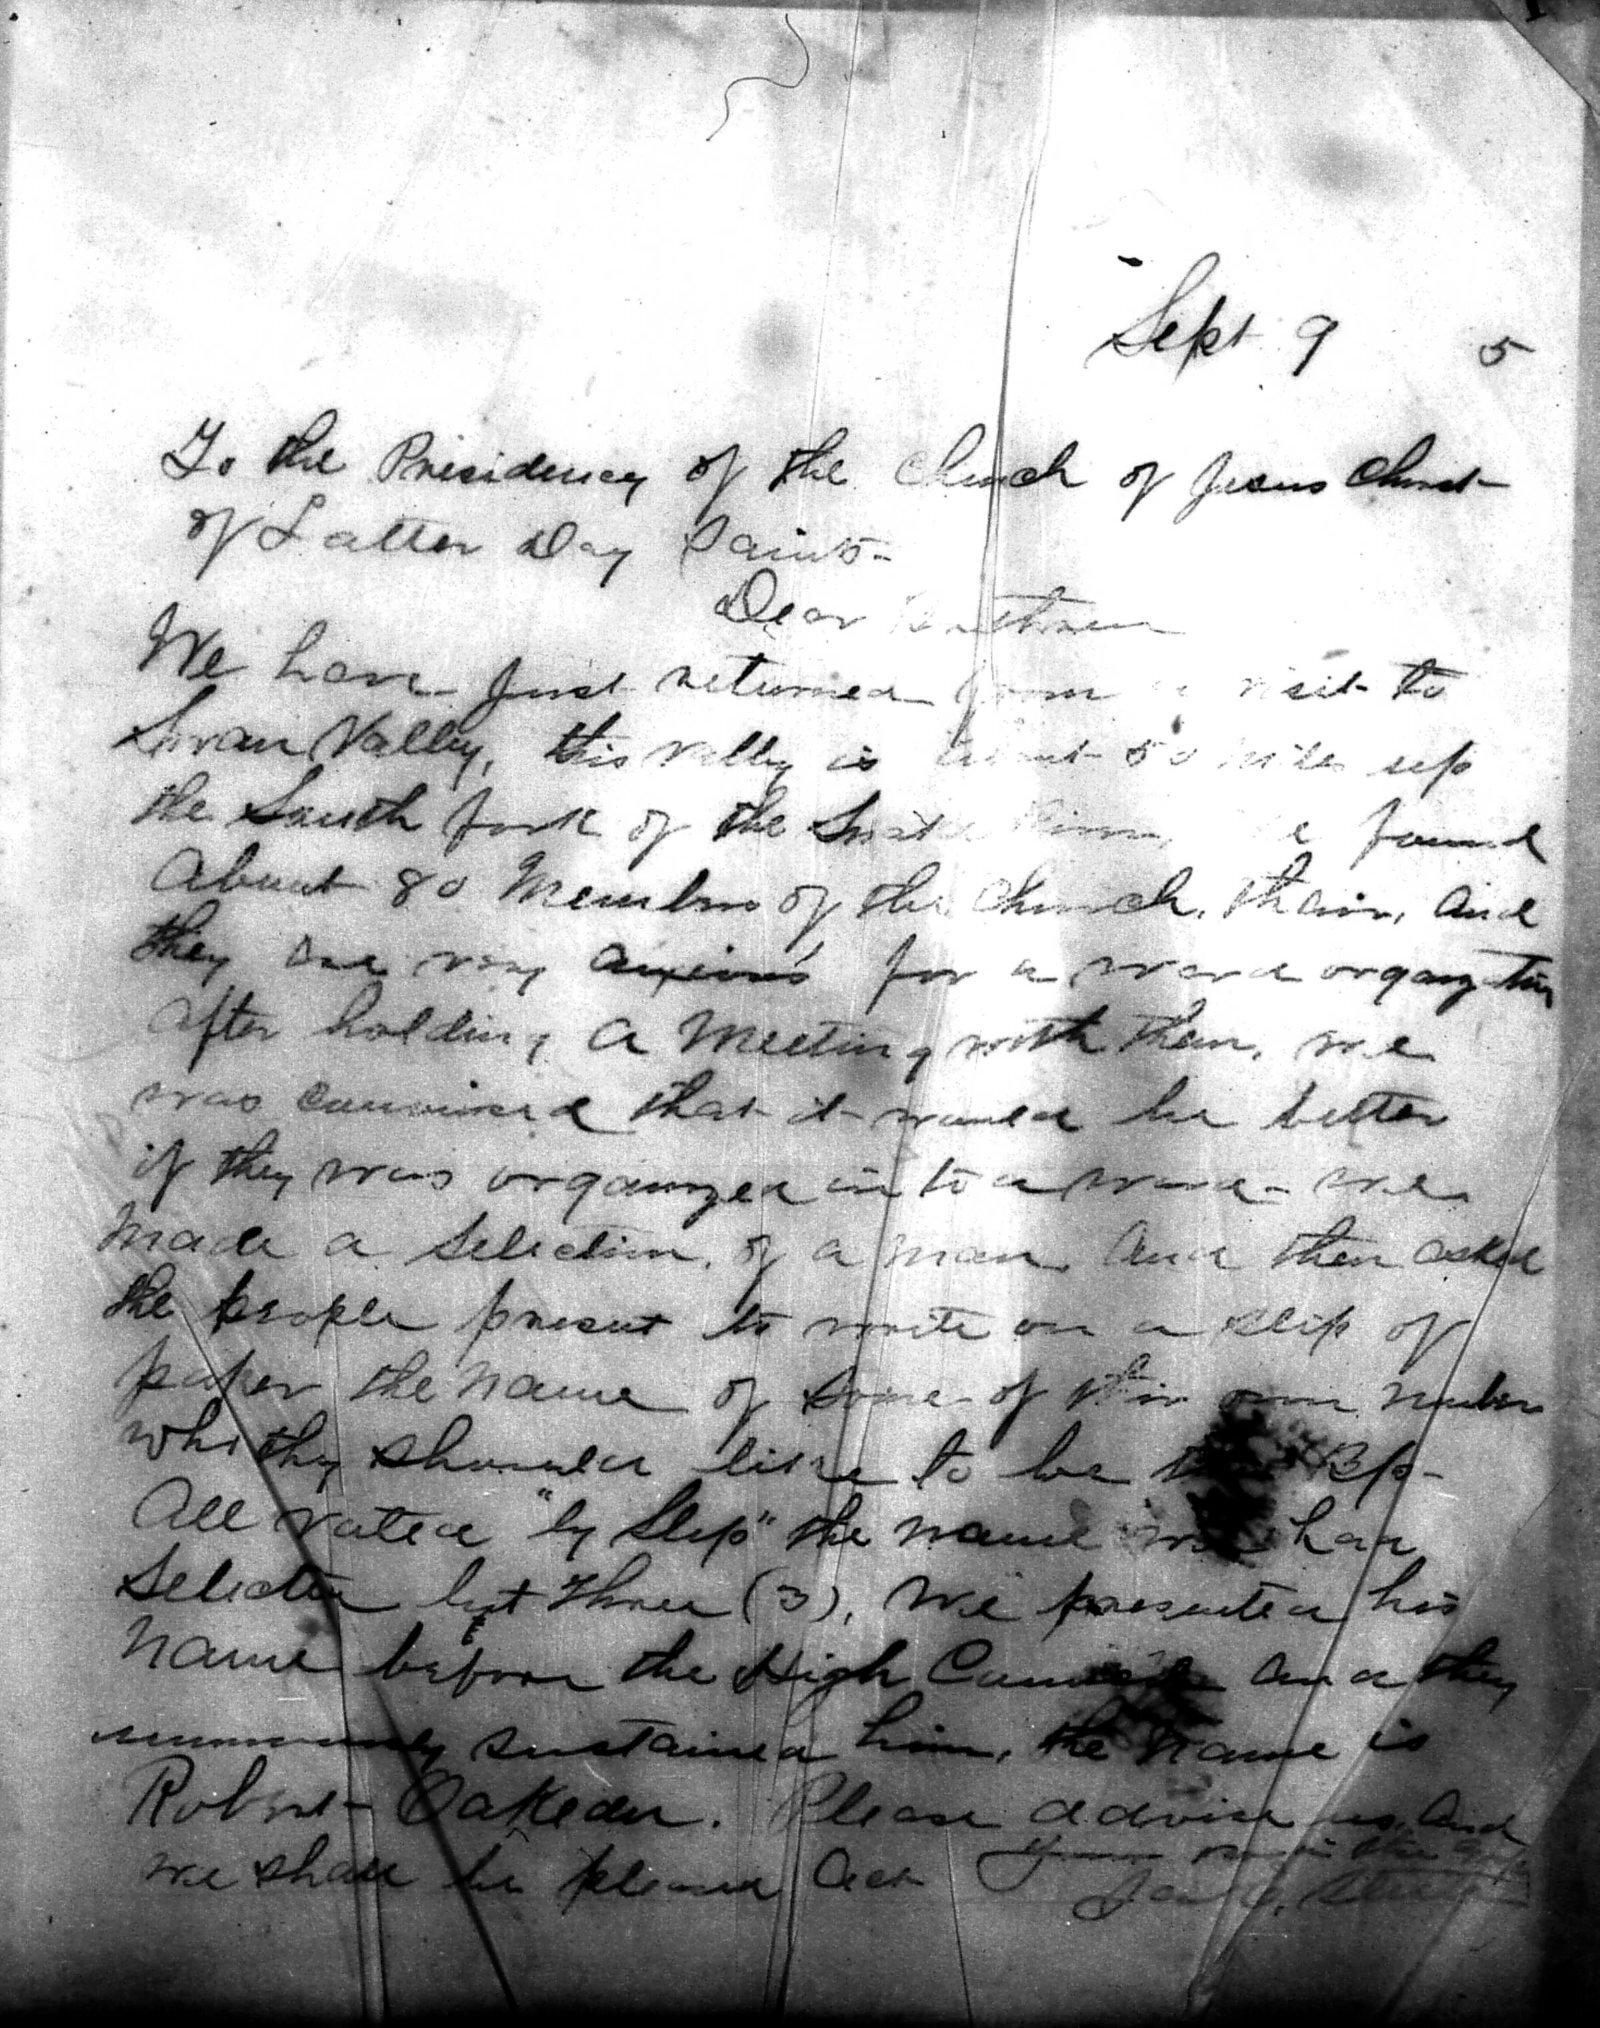 Sept 9 5
To the Presidency of the Church of Jesus Christ
of Latter Day Saints-
Dear Brethren
We have just returned from a visit to
Swan Valley, this vally is about 50 miles up
the South fork of the Snake River, We found
About 80 Members of the Church, thair, And
they are very anxious for a ward organiztion
After holding A Meeting with them, we
was convinced that it would be better
if they was organized in to a ward - we
Made a Selection, of a man, And then asked
the people present to write on a slip of
paper the Name of some of thir own number
who thy should like to be Bp-
All voted "by Slip" the name we had
Selected but three (3), We presented his
Name before the High Council and they
sustained him, the Name is
Robert Oakeden. Please advise us, And
we shall be pleased Act Yours in the